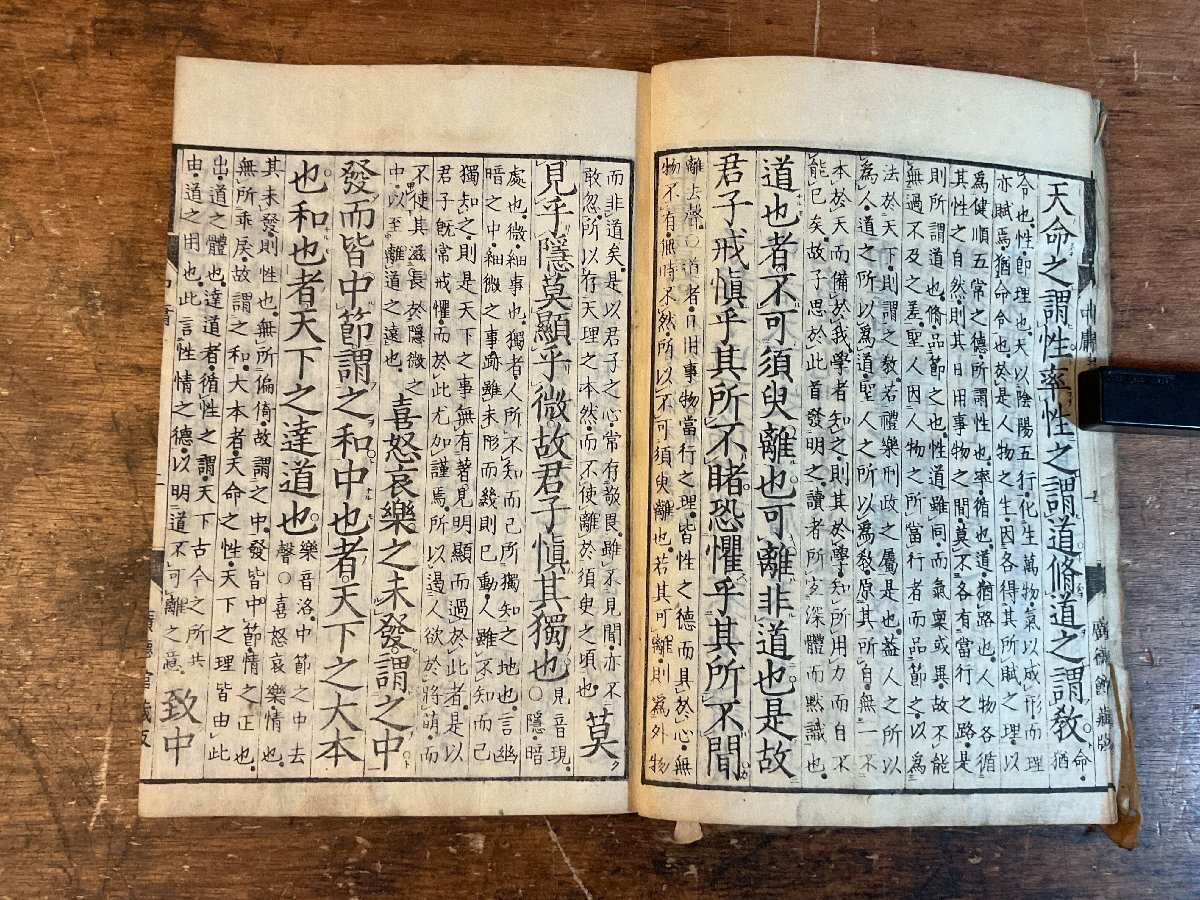 天命之謂性率性之謂道脩道之謂教命猶
令也性即理也天以陰陽五行化生萬物氣以成形而理
亦賦焉猶命令也於是人物之生因各得其所賦之理以
為健順五常之德所謂性也率循也道猶路也人物各循
其性之自然則其日用事物之間莫不各有當行之路是
則所謂道也脩品節之也性道雖同而氣稟或異故不能
無過不及之差聖人因人物之所當行者而品節之以為
法於天下則謂之教若禮樂刑政之屬是也蓋人之所以
為人道之所以為道聖人之所以為教原其所自無一不
本於天而備於我學者知之則其於學知所用力而自不
能已矣故子思於此首發明之讀者所宜深體而默識也
道也者不可須臾離也可離非道也是故
君子戒慎乎其所不睹恐懼乎其所不聞
離去聲○道者日用事物當行之理皆性之德而具於心無
物不有無時不然所以不可須臾離也若其可離則為外物
而非道矣是以君子之心常存敬畏雖不見聞亦不
敢忽所以存天理之本然而不使離於須臾之頃也莫
見乎隱莫顯乎微故君子慎其獨也見音現○隱暗
處也微細事也獨者人所不知而己所獨知之地也言幽
暗之中細微之事跡雖未形而幾則已動人雖不知而己
獨知之則是天下之事無有著見明顯而過於此者是以
君子既常戒懼而於此尤加謹焉所以遏人欲於將萌而
不使其滋長於隱微之
中以至離道之遠也喜怒哀樂之未發謂之中
發而皆中節謂之和中也者天下之大本
也和也者天下之達道也樂音洛中節之中去
聲○喜怒哀樂情也
其未發則性也無所偏倚故謂之中發皆中節情之正也
無所乖戾故謂之和大本者天命之性天下之理皆由此
出道之體也達道者循性之謂天下古今之所共
由道之用也此言性情之德以明道不可離之意致中
中庸
廣德館藏版